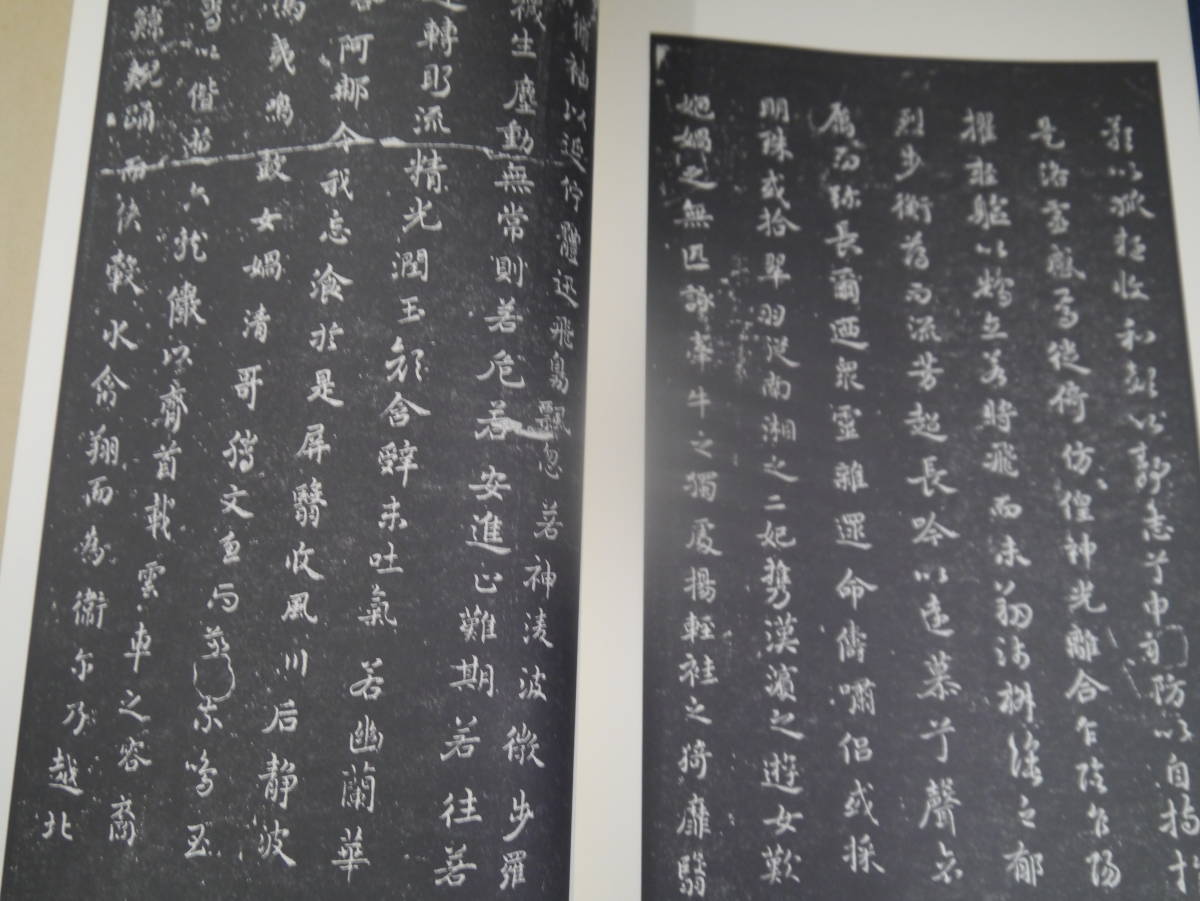 以狐疑收和顔以静志兮申礼防以自持
是洛靈感焉徙倚仿偟神光離合乍陰乍陽
擢輕軀以鶴立若將飛而未翔踐椒塗之郁
烈步衡薄而流芳超長吟以遠慕兮聲哀
厲而弥長爾迺衆靈雜遝命儔嘯侶或採
明珠或拾翠羽從南湘之二妃携漢濱之遊女歎
媧之無匹詠牽牛之獨處揚輕袿之猗靡翳
脩袖以延佇體迅飛鳧飄忽若神淩波微步羅
襪生塵動無常則若危若安進止難期若往若
還轉眄流精光潤玉顔含辭未吐氣若幽蘭華
阿那令我忘飡於是屏翳收風川后静波
馮夷鳴鼓女媧清哥騰文魚而並乘鳴玉
以偕逝六龍儼以齊首載雲車之容裔
鯨鯢踊而俠轂水禽翔而為衛尓乃越北